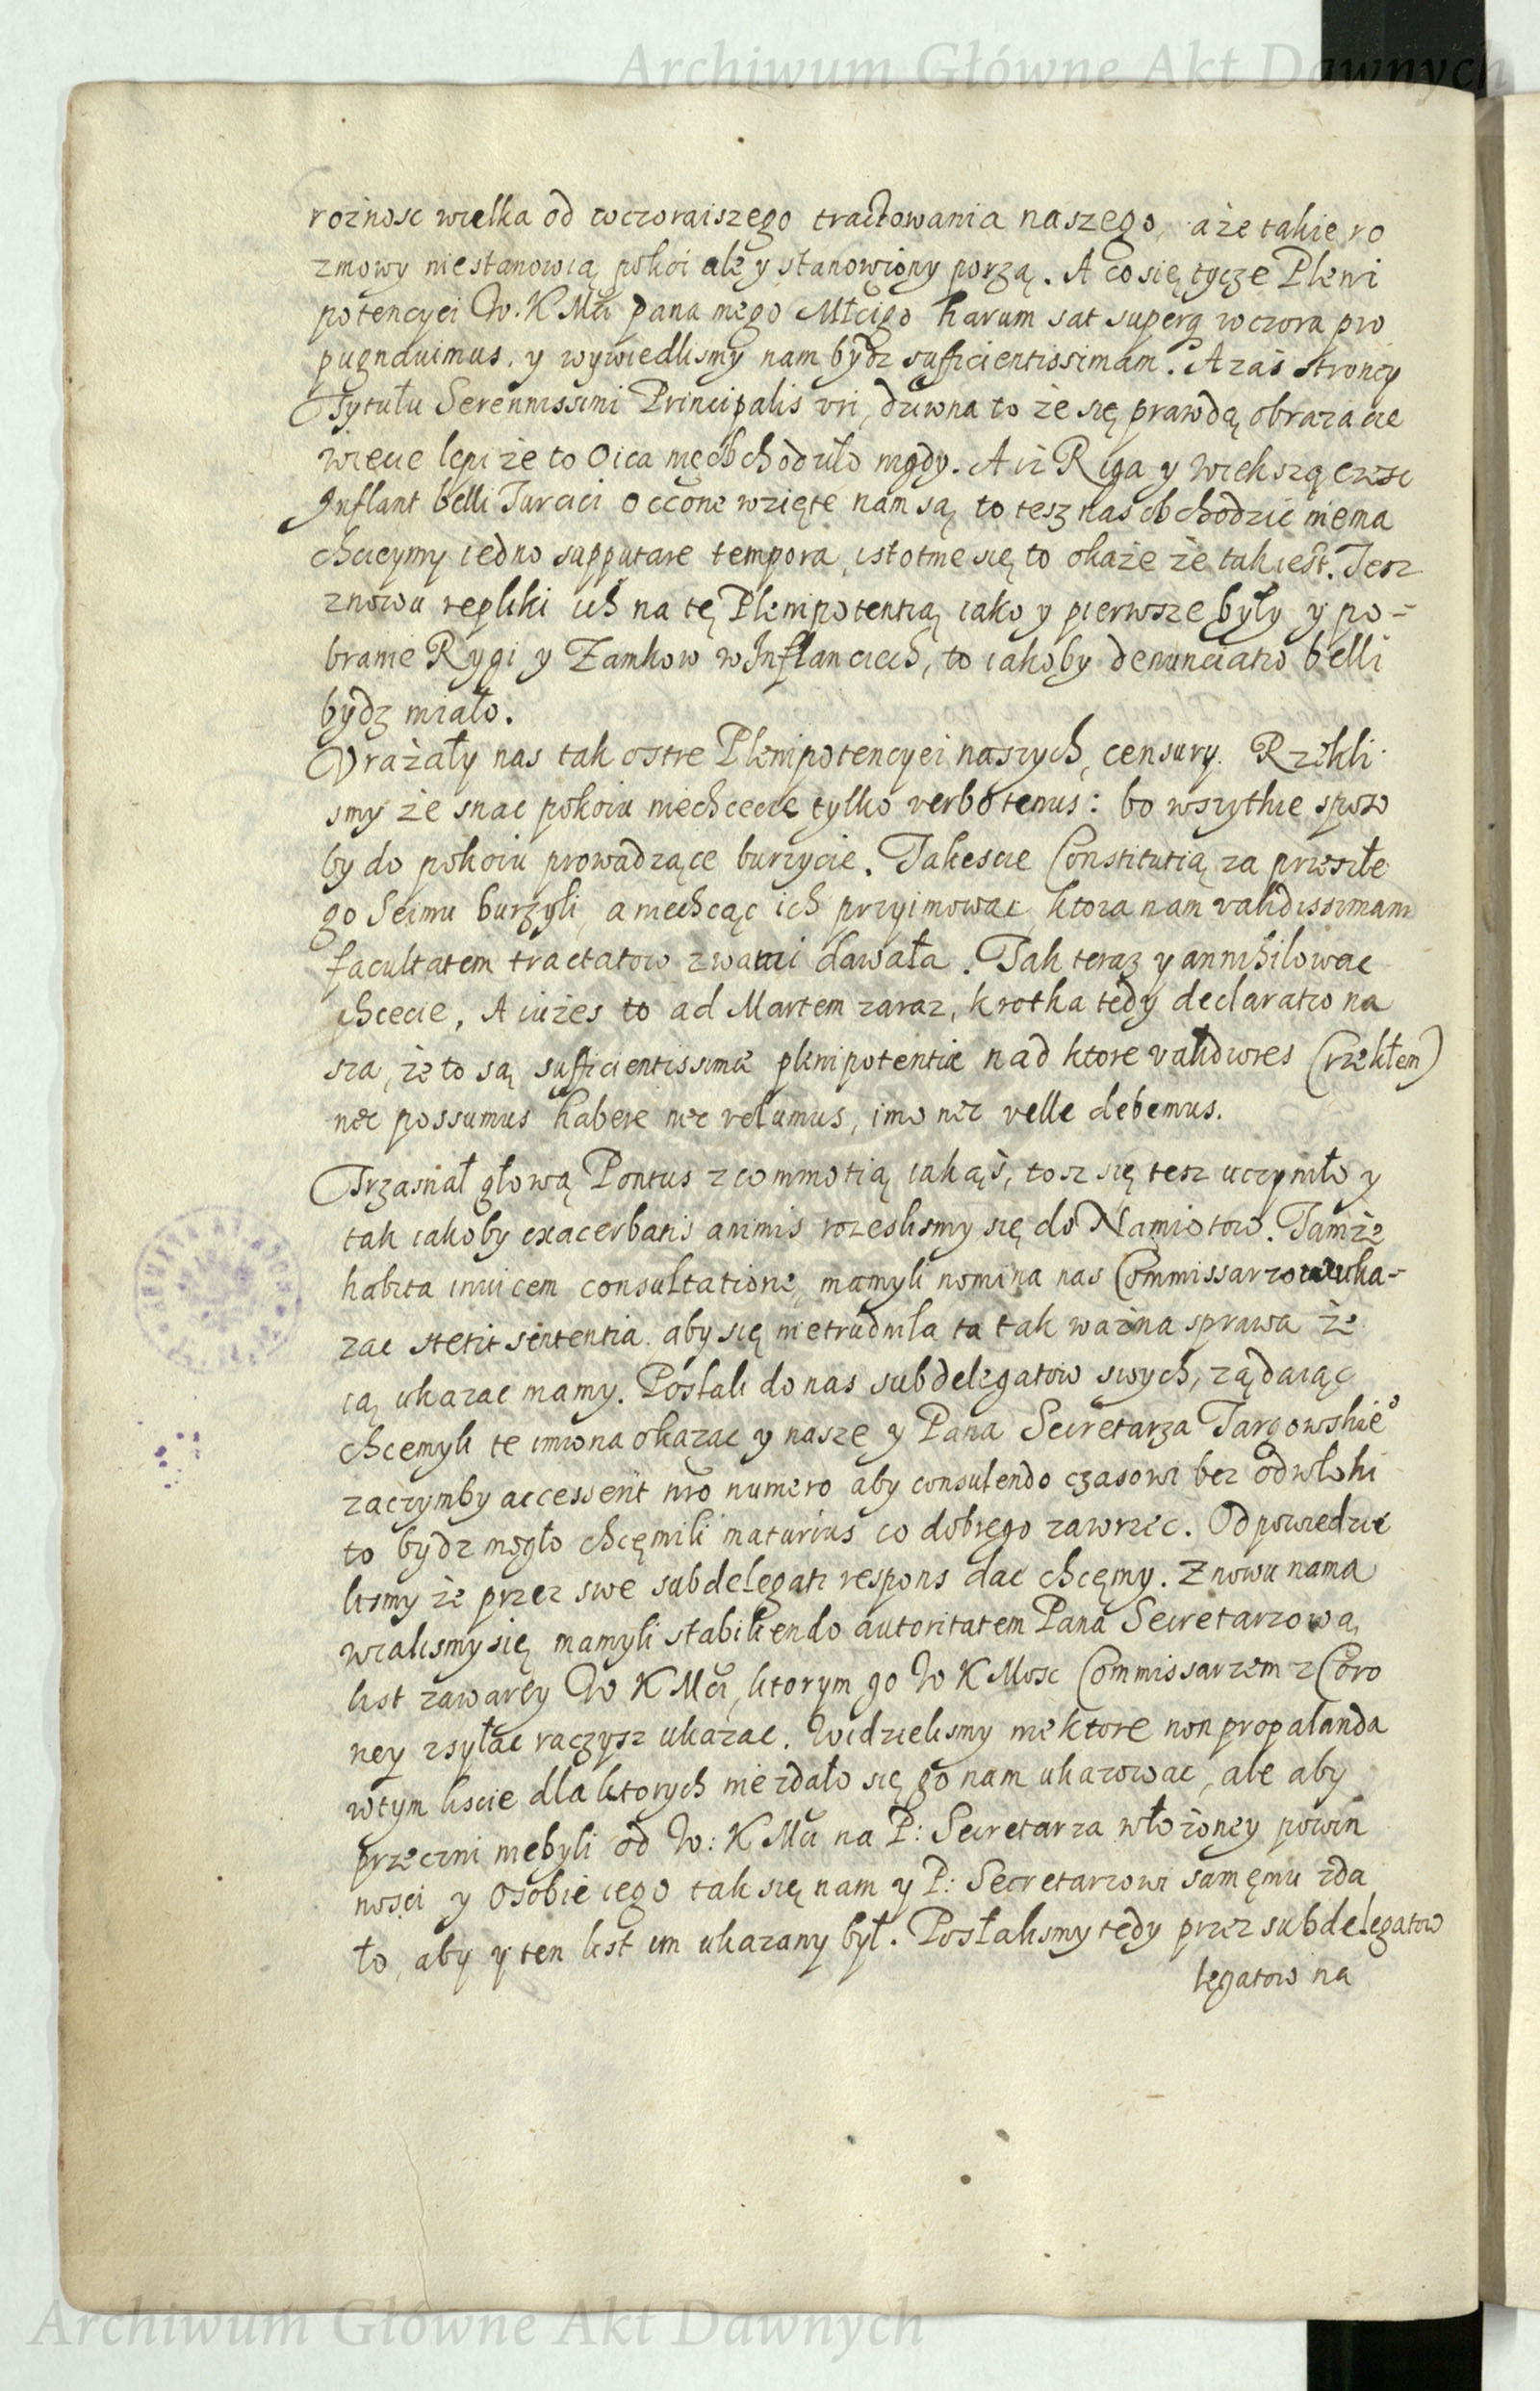 Archiwum Główne Akt Dawnych
rożnosc wielka od wczoraiszego tractowania naszego, a że takie ro
zmowy niestanowią pokoi ale y stanowiony porzą. A co się tycze Pleni
potencyei W. K Mci pana mego Młcigo harum sat superq wczora pro
pugnauimus. y wywiedlismy nam bydz sufficientissimam. A zaś stroney
Tytułu Serennissimi Principalis vri, dziwna to że się prawdą obrazacie
wiecie lepi że to Oica nieobchodziło nigdy. A iż Riga y wiekszą czesc
Inflant belli Turcici occone wzięte nam są, to tesz nas obchodzic niema
chcieymy iedno supputare tempora, istotnie się to okaże że tak iest. Iesz
znowu repliki ich na tę Plenipotentią iako y pierwsze były y po-
branie Rygi y Zamkow w Inflanciech, to iakoby denunciatio belli
bydz miało.
Vrażały nas tak ostre Plenipotencyei naszych, censury. Rzekli
smy że snac pokoiu niechcecie tylko verbotenus: bo wszytkie sposo
by do pokoiu prowadzące burzycie. Takescie Constitutią za przeszłe
go Seimu burzyli, a niechcąc ich przyimowac, ktora nam validissimam
facultatem tractatow zwami dawała. Tak teraz y annihilowac
chcecie. A iużes to ad Martem zaraz, krotka tedy declaratio na
sza, że to są sufficientissimæ plenipotentiæ nad ktore validiores (rzekłem)
nec possumus habere nec volumus, imo nec velle debemus.
Trzasnał głową Pontus z commotią iakąś, tosz się tesz uczyniło y
tak iakoby exacerbatis animis rozeslismy się do Namiotow. Tamże
habita inuicem consultatione, mamyli nomina nas Commissarzow uka-
zac stetit sententia. aby się nietrudniła ta tak ważna sprawa że
ią ukazac mamy. Posłali do nas subdelegatow swych, żądaiąc
chcemyli te imiona okazac y nasze y Pana Secretarza Targowskie°
zaczymby accesserit nro numero aby consulendo czasowi bez odwłoki
to bydz mogło chcęmili maturius co dobrego zawrzec. Odpowiedzie
lismy że przez swe subdelegati respons dac chcęmy. Znowu nama
wialismy się mamyli stabiliendo autoritatem Pana Secretarzową,
list zawarty W K Mci, ktorym go W K Mosc Commissarzem z Coro
ney zsyłac raczysz ukazac. Widzielismy niektore non propalanda
wtym liscie dla ktorych niezdało się go nam ukazowac, ale aby
przeczni niebyli od W: K Mci na P: Secretarza włożoney powin
nosci y Osobie iego tak się nam y P: Secretarzowi samęmu zda
ło, aby y ten list im ukazany był. Posłalismy tedy przez subdelegatow
legatow na
Archiwum Główne Akt Dawnych